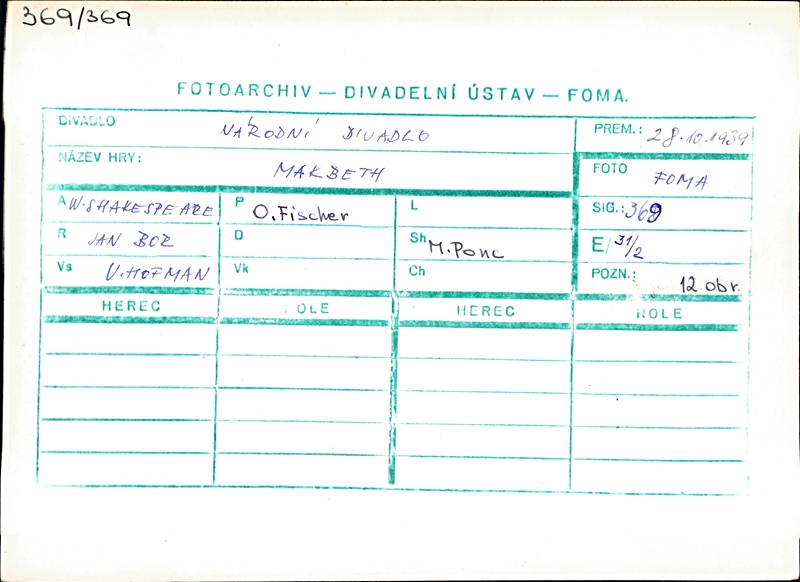 369/369
FOTOARCHIV — DIVADELNÍ ÚSTAV — FOMA.
DIVADLO NÁRODNÍ DIVADLO PREM.: 28.10.1939
NÁZEV HRY: MAKBETH FOTO FOMA
A W.SHAKESPEARE P O.Fischer L SIG.: 369
R JAN BOR D Sh M.Ponc E/ 31/2
Vs V.HOFMAN Vk Ch POZN.: 12.obr.
HEREC ROLE HEREC ROLE